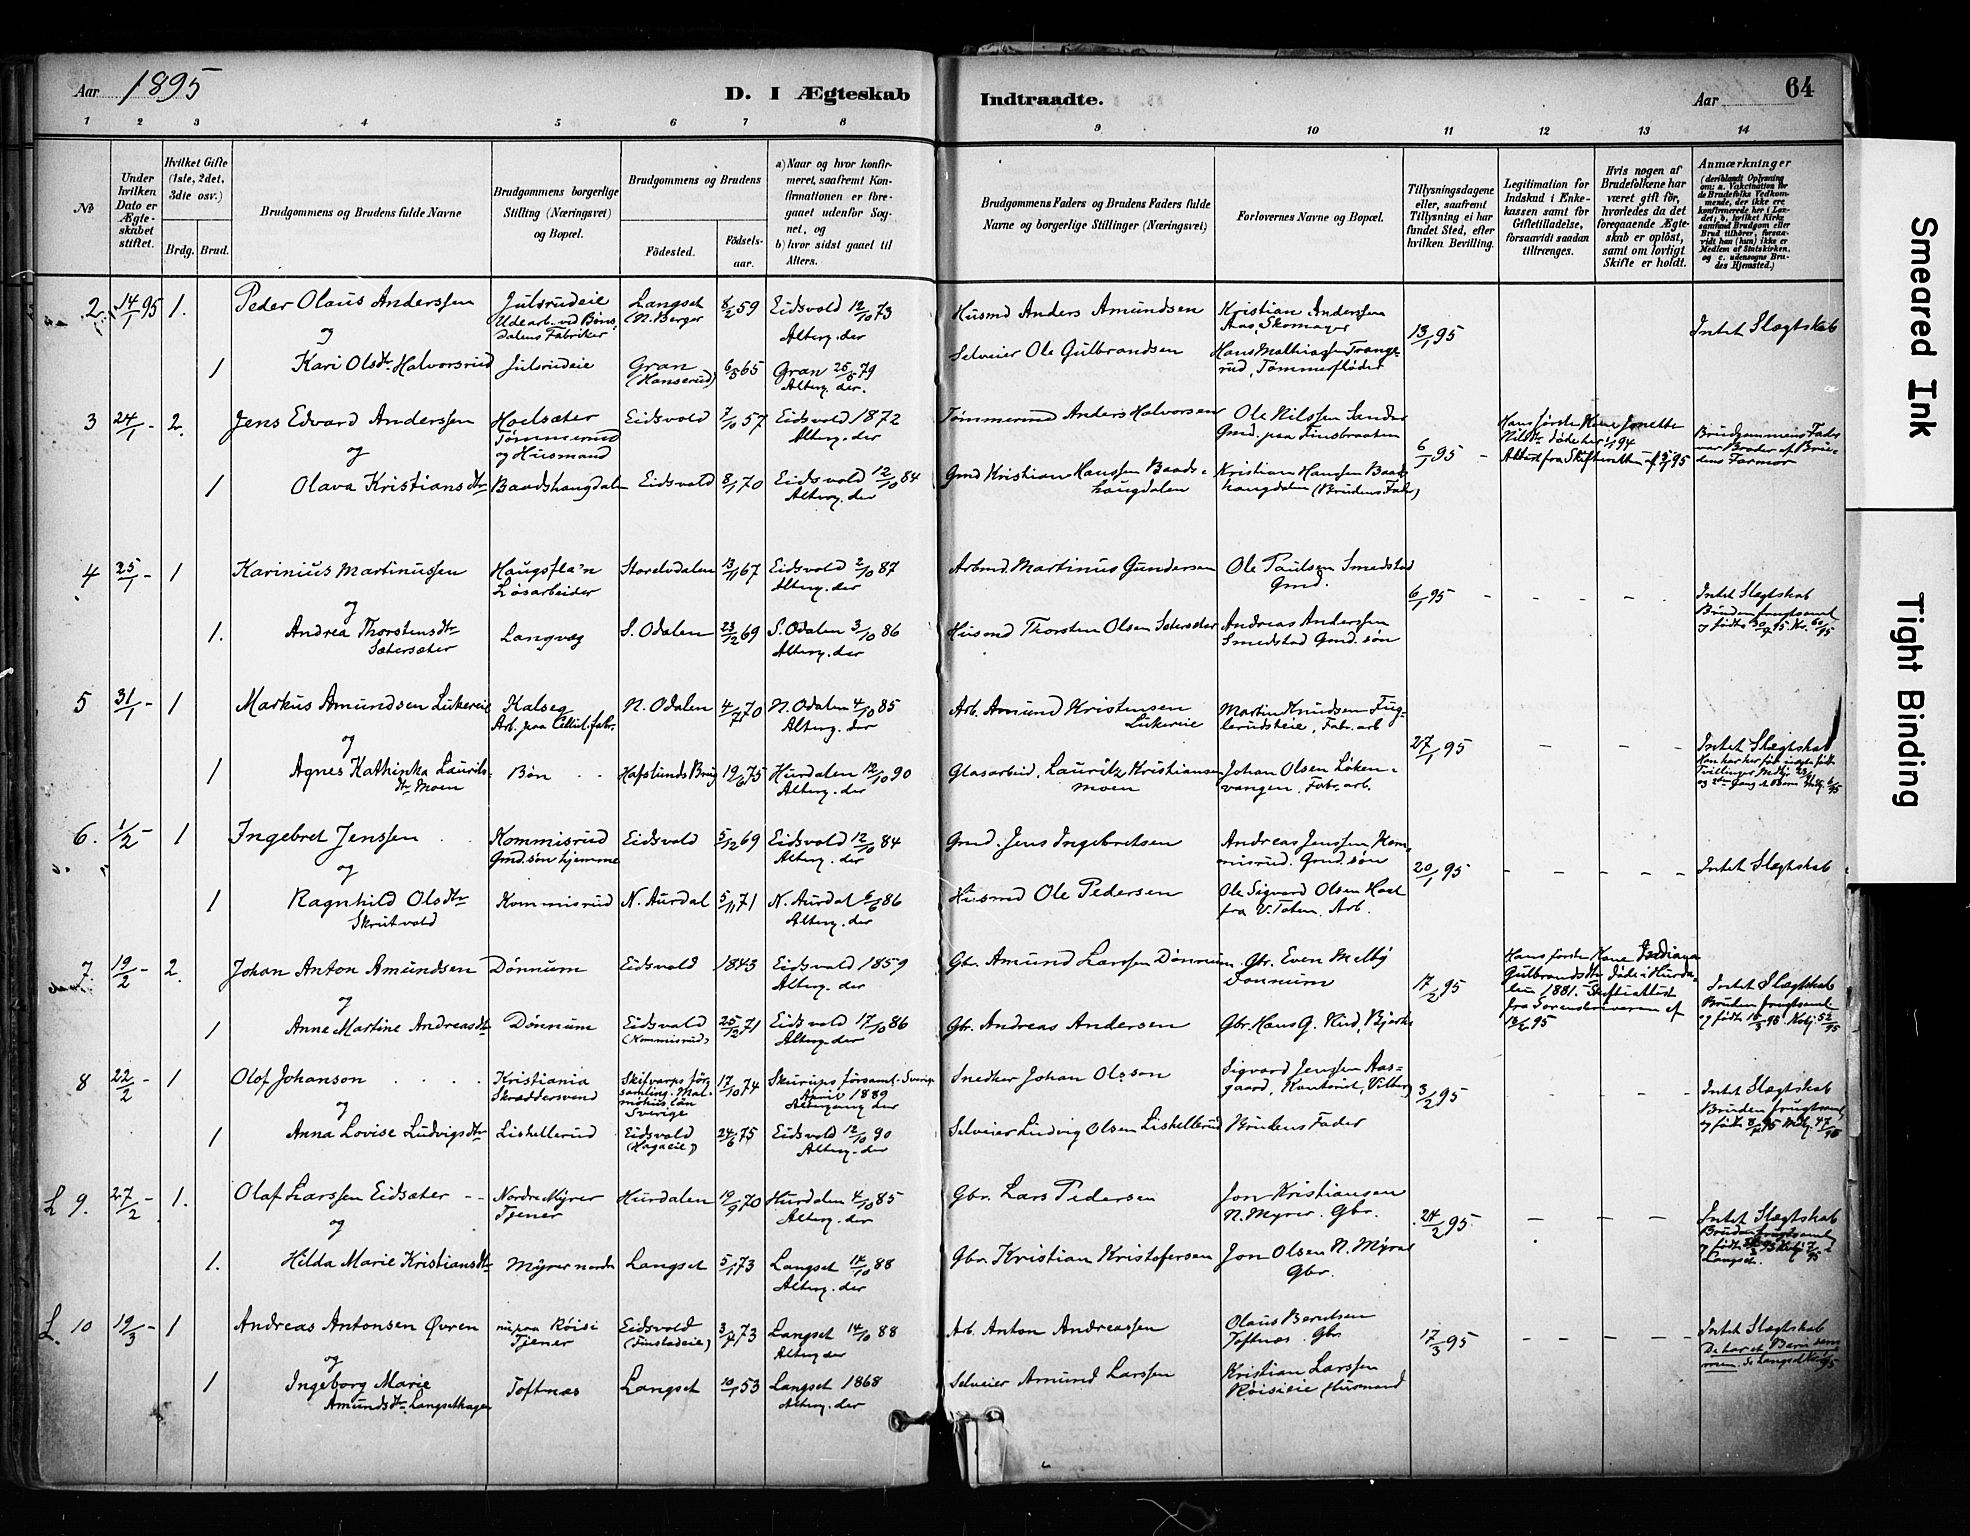 Aar 1895
D. I Ægteskab Indtraadte.
Aar 64
1 2 3 4 5 6 7 8 9 10 11 12 13 14
№
Under hvilken Dato er Ægteskabet stiftet.
Hvilket Gifte (1ste, 2det, 3die osv.)
Brdg. Brud.
Brudgommens og Brudens fulde Navne
Brudgommens borgerlige Stilling (Næringsvei) og Bopæl.
Brudgommens og Brudens
Fødested. Fødselsaar.
a) Naar og hvor konfirmeret, saafremt Konfirmationen er foregaaet udenfor Sognet, og
b) hvor sidst gaaet til Alters.
Brudgommens Faders og Brudens Faders fulde Navne og borgerlige Stillinger (Næringsvei)
Forlovernes Navne og Bopæl.
Tillysningsdagene eller, saafremt Tillysning ei har fundet Sted, efter hvilken Bevilling.
Legitimation for Indskud i Enkekassen samt for Giftetilladelse, forsaavidt saadan tiltrænges.
Hvis nogen af Brudefolkene har været gift før, hvorledes da det foregaaende Ægteskab er opløst, samt om lovligt Skifte er holdt.
Anmærkninger
(deriblandt Oplysning om: a. Vakcination for de Brudefolks Vedkommende, der ikke ere konfirmerede her i Landet; b. hvilket Kirkesamfund Brudgom eller Brud tilhører, forsaavidt han (hun) ikke er Medlem af Statskirken, og c. udensogns Brudes Hjemsted.)
2 14/1 95 1. Peder Olaus Anderssen Julsrudeie Udearb. ved Bønsdalens Fabriker Langset (N. Berger 8/2 59 Eidsvold 12/10 73 Alterg. der Husmd Anders Amundsen Kristian Anderssen Aas, Skomager 13/1 95 Intet Slægtskab
og
1 Kari Olsdtr Halvorsrud Julsrudeie Gran (Hanserud) 6/5 65 Gran 25/5 79 Alterg. der. Selveier Ole Gulbrandsen Hans Mathiassen Trangerud, Tømmerfløder
3 24/1 - 2. Jens Edvard Anderssen Hoelsæter Tømmermd og Husmand Eidsvold 7/10 57 Eidsvold 1872 Alterg. der Tømmermd Anders Halvorsen Ole Nilssen Sander Gmd. paa Finsbraaten 6/1 95 - Hans første Kone Jonette Nilsdtr døde her 94 Attest fra Skifteretten Brudgommens Fader var Broder af Brudens Farmor
og
1 Olava Kristiansdtr Baadshaugdalen Eidsvold 8/1 70 Eidsvold 12/10 84 Alterg. der Gmd Kristian Hanssen Baadshaugdalen Kristian Hanssen Baadshaugdalen (Brudens Fader)
4 25/1 - 1 Karinius Martinussen Haugsfla'n Løsarbeider Storelvdalen 13/11 67 Eidsvold 2/10 87 Alterg. der Arbmd. Martinus Gundersen Ole Paulsen Smedstad Gmd. 6/1 95 - - - - Intet Slægtskab Bruden frugtsommel
og
1. Andrea Thorstensdtr Sætersæter Langvæg S. Odalen 23/2 69 S. Odalen 3/10 86 Alterg. der Husmd Thorsten Olsen Sætersæter Andreas Andersen Smedstad Gmd. søn
5 31/1 - 1 Markus Amundsen Lükereie Kalseg Arb. paa Cellul.fabr. N. Odalen 4/7 70 N. Odalen 4/10 85 Alterg. der Arb. Amund Kristensen Lükereie Martin Knudsen Fuglerudseie, Fabr. arb 27/1 95 - - - Intet Slægtskab
og
1 Agnes Kathinka Lauritsdtr Moen Bøn Hafslunds Brug 19/6 75 Hurdalen 12/10 90 Alterg. der Glasarbeid. Lauritz Kristiansen moen Johan Olsen Løkenvangen, Fabr. arb.
6. 1/2 - 1 Ingebret Jenssen Kommisrud Gmd. søn hjemme Eidsvold 5/12 69 Eidsvold 12/10 84 Alterg. der Gmd. Jens Ingebretsen Andreas Jenssen Kommisrud. Gmd. søn 20/1 95 - - - - - Intet Slægtskab
og
1 Ragnhild Olsdtr Skrutvold Kommisrud N. Aurdal 5/11 71 N. Aurdal 6/6 86 Alterg. der Husmd Ole Pedersen Ole Sigvard Olsen fra V. Toten. Arb.
7. 19/2 - 2. Johan Anton Amundsen Dønnum Eidsvold 1843 Eidsvold 1859 Alterg. der Gbr. Amund Larssen Dønnum Gbr. Even Melby Dønnum 17/2 95 Hans første Kone Gulbrandsdtr døde i Hurdalen 1881. Skifteattest Intet Slægtskab Bruden frugtsommel
og
1 Anne Martine Andreasdtr Dønnum Eidsvold (Kommisrud) 25/12 71 Eidsvold 17/10 86 Alterg. der Gbr. Andreas Andersen Gbr. Hans G. Rud, Bjerke
8 22/2 - 1 Olof Johanson Kristiania Skræddersvend Skifvarps församling. Malmöhus län Sverige 17/10 74 Skurups församl. Sverige April 1889 Altergang der Snedker Johan Olsson Sigvard Jenssen Aasgaard, Kontorist, Vilberg 3/2 95 - - Intet Slægtskab Bruden frugtsommel
og
1 Anna Lovise Ludvigsdtr Liskellerud Eidsvold (Hagaeie) 24/6 75 Eidsvold 12/10 90 Alterg. der Selveier Ludvig Olsen Liskellerud Brudens Fader
L 9. 27/2 - 1. Olaf Larssen Eidsæter Nordre Myrer Tjener Hurdalen 19/9 70 Hurdalen 4/10 85 Alterg. der Gbr. Lars Pedersen Jon Kristiansen N. Myrer. Gbr. 24/2 95 - - - Intet Slægtskab Bruden frugtsommel
og
1. Hilda Marie Kristiansdtr Myrer nordre Langset 5/1 73 Langset 14/10 88 Alterg. der Gbr. Kristian Kristofersen Jon Olsen N. Myrer Gbr.
L. 10 19/3 - 1 Andreas Antonsen Øvren nu paa Røisi Tjener Eidsvold (Finstadeie) 3/7 73 Langset 14/10 88 Alterg der Arb. Anton Andreassen Olaus Berntsen Toftnæs. Gbr 17/3 95 - - - - Intet Slægtskab De har et Barn sammen.
og
1 Ingeborg Marie Amundsdtr Langsethagen Toftnæs Langset 10/1 53 Langset 1868 Alterg. der Selveier Amund Larssen Kristian Larssen Røisieie Husmand
Smeared Ink
Tight Binding